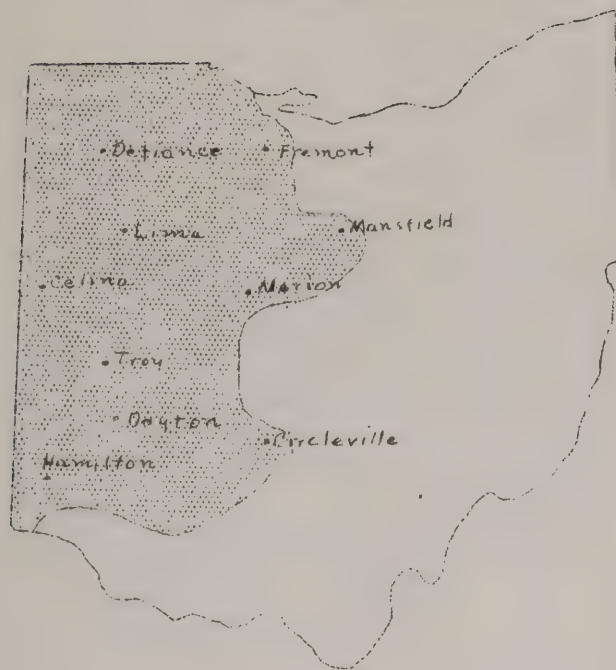 Defiance
Fremont
Lima
Mansfield
Celina
Marion
Troy
Dayton
Circleville
Hamilton